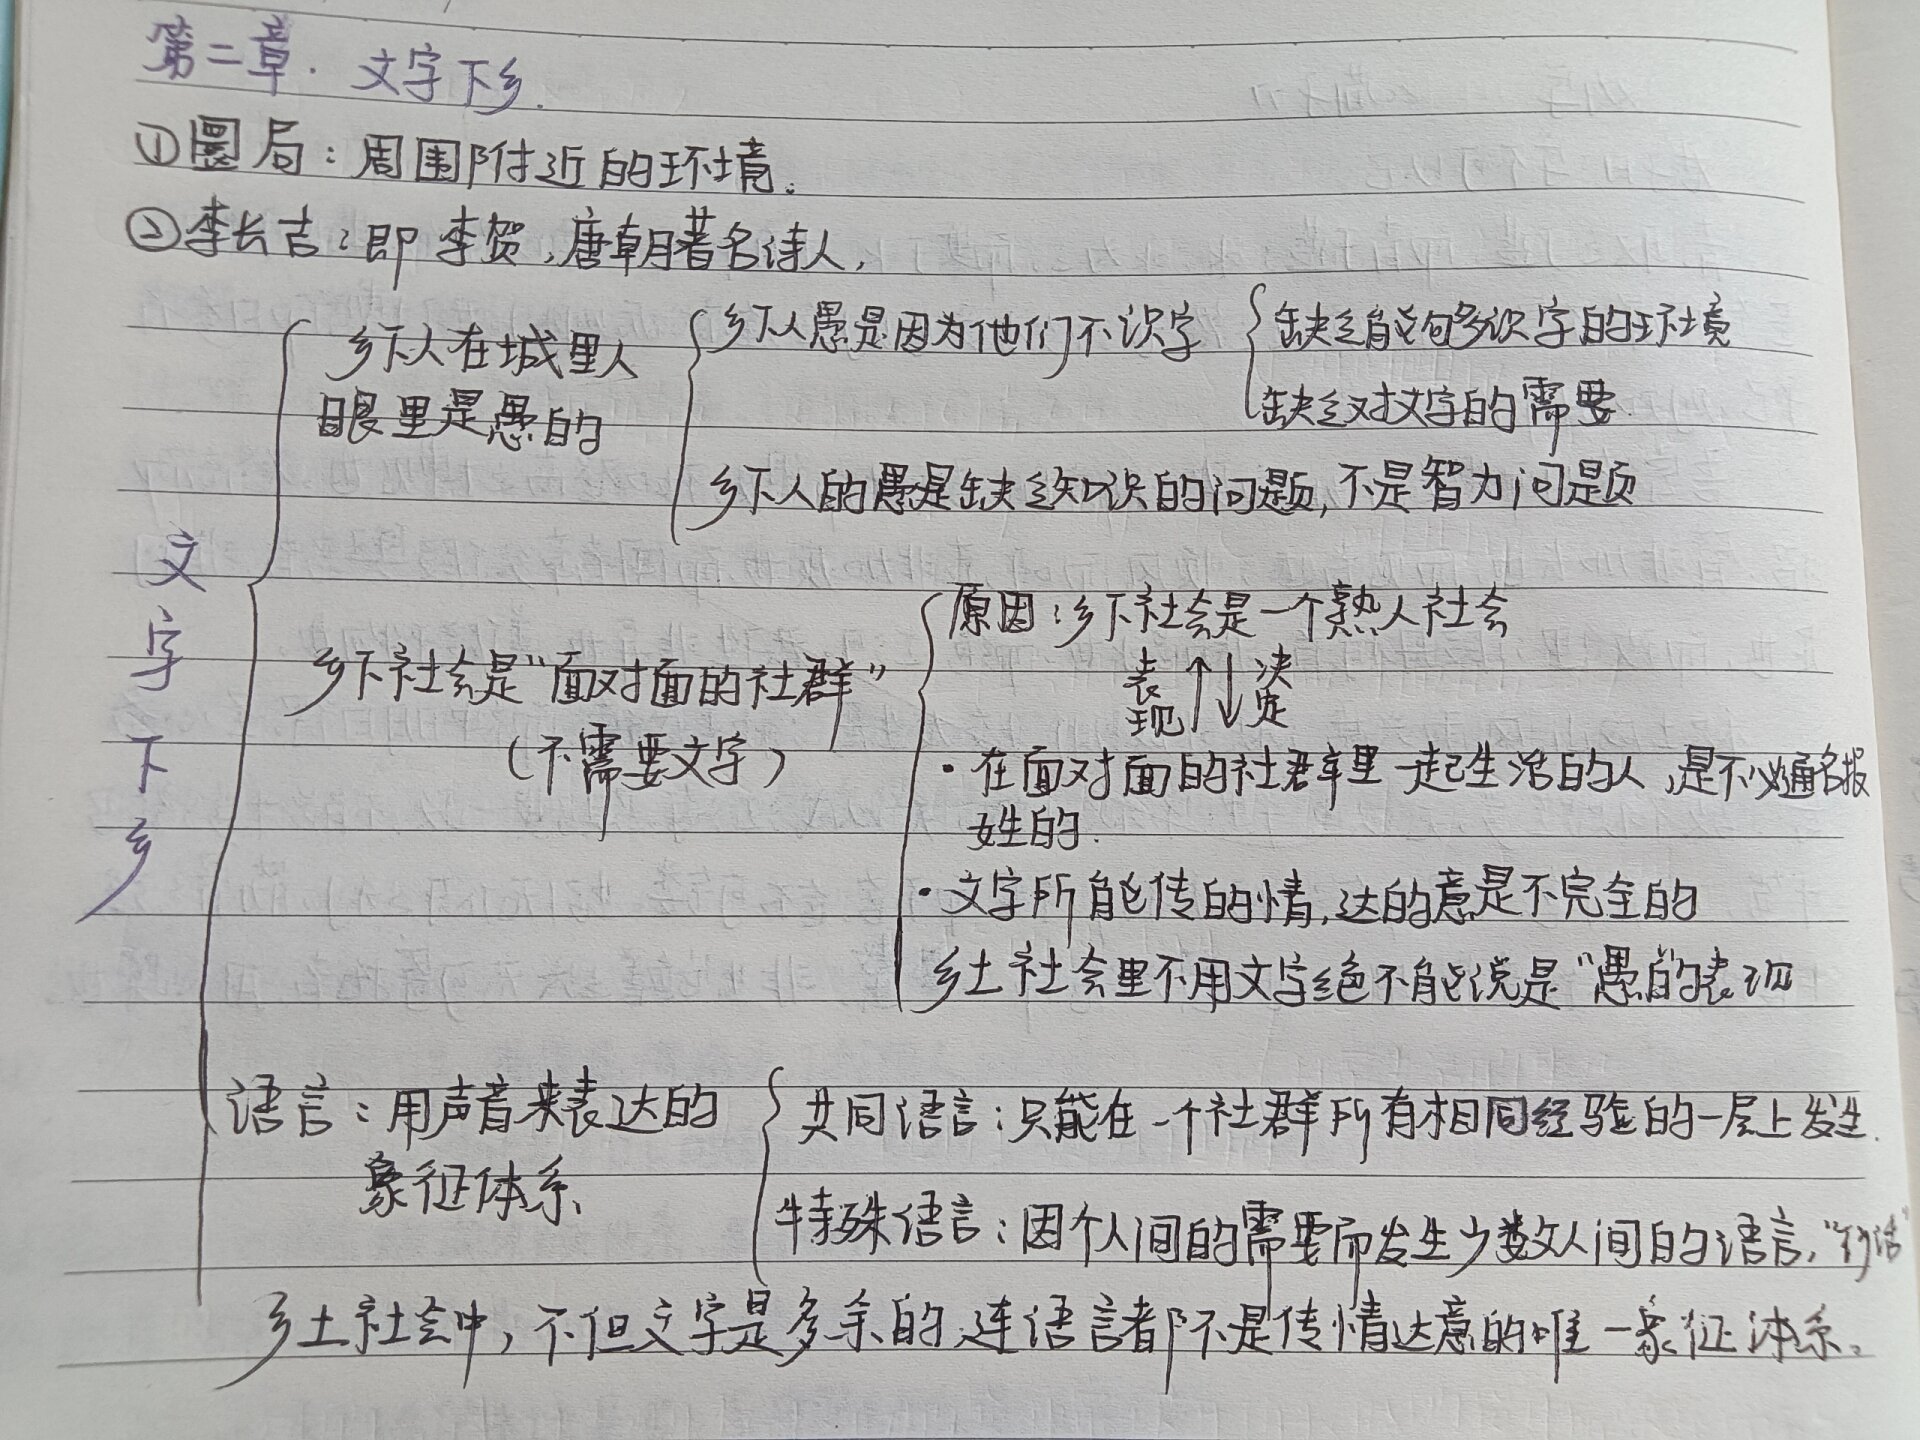 第二章. 文字下乡.
①圜局：周围附近的环境。
②李长吉：即李贺,唐朝著名诗人,
文字下乡
乡下人在城里人
眼里是愚的
乡下人愚是因为他们不识字
缺乏能够多识字的环境
缺乏对文字的需要.
乡下人的愚是缺乏知识的问题,不是智力问题
乡下社会是"面对面的社群"
(不需要文字)
原因：乡下社会是一个熟人社会
表现 ↑↓ 决定
·在面对面的社群里一起生活的人,是不必通名报
姓的.
·文字所能传的情,达的意是不完全的
乡土社会里不用文字绝不能说是"愚"的表现
语言：用声音来表达的
象征体系
共同语言：只能在一个社群所有相同经验的一层上发生.
特殊语言：因个人间的需要而发生少数人间的语言,"行话"
乡土社会中,不但文字是多余的,连语言都不是传情达意的唯一象征体系。